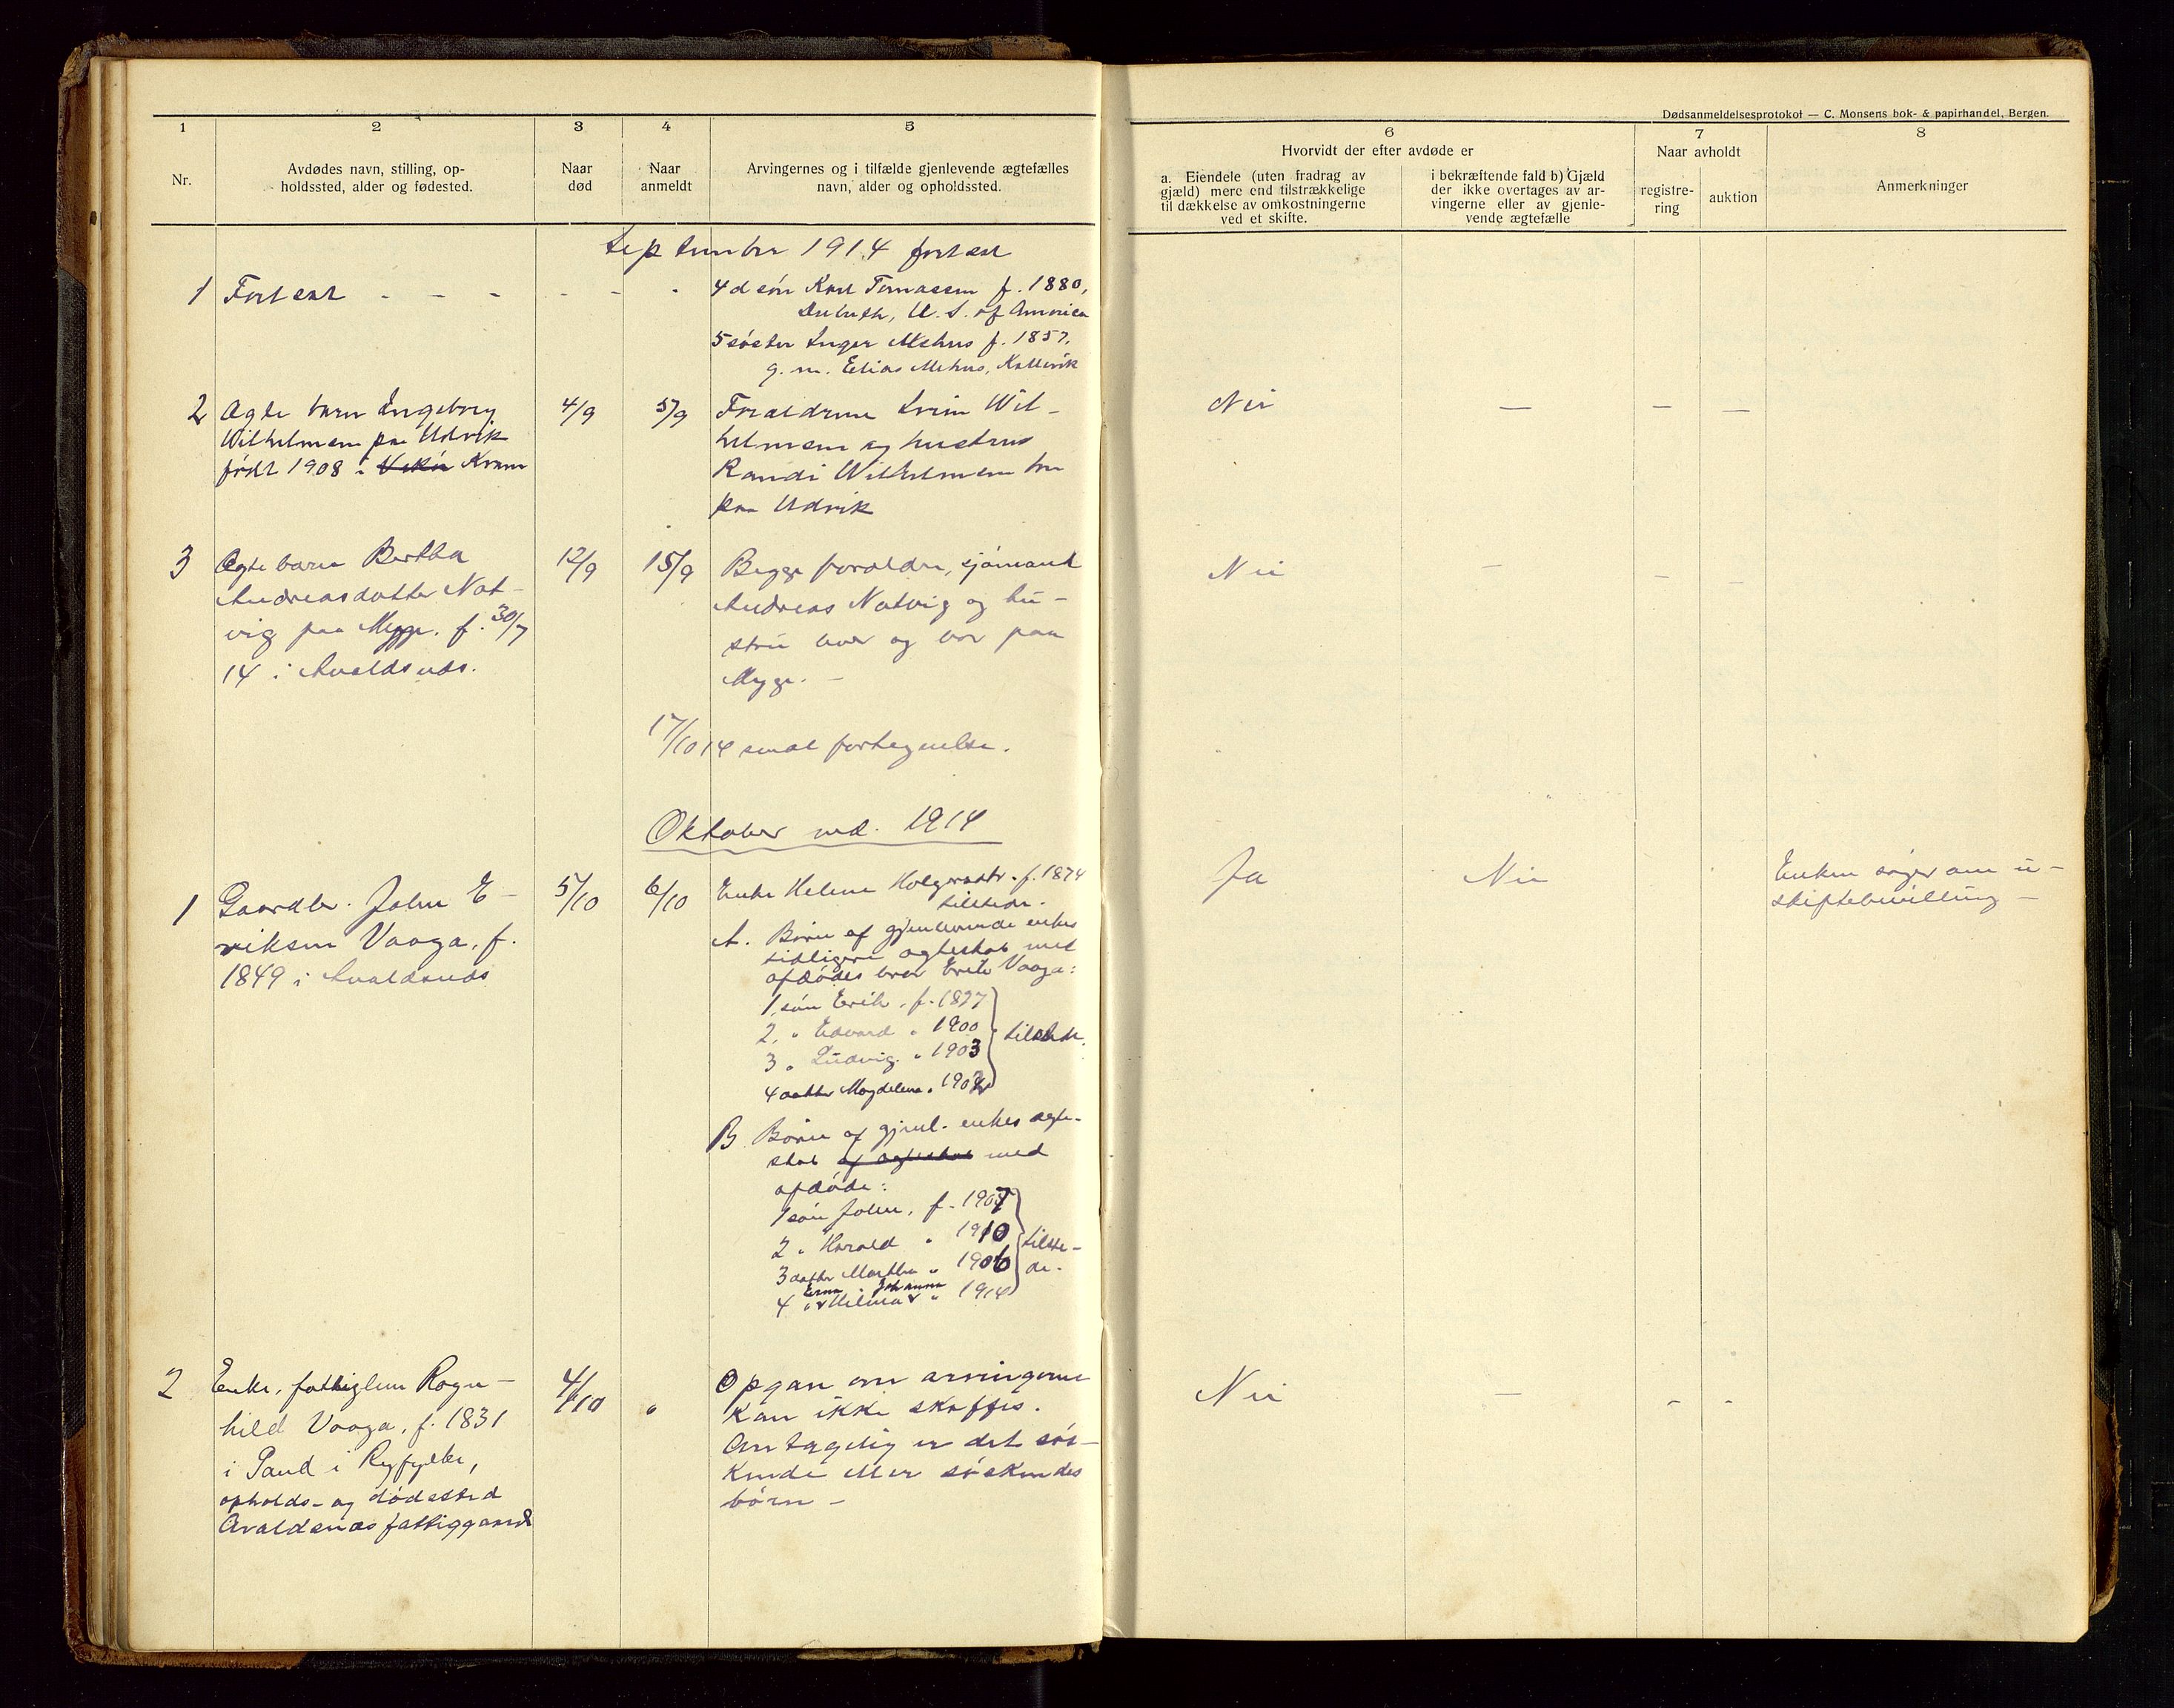 Dødsanmeldelsesprotokol — C. Monsens bok- & papirhandel, Bergen.
1 2 3 4 5 6 7 8
Nr.
Avdødes navn, stilling, op-
holdssted, alder og fødested.
Naar
død
Naar
anmeldt
Arvingernes og i tilfælde gjenlevende ægtefælles
navn, alder og opholdssted.
Hvorvidt der efter avdøde er
a. Eiendele (uten fradrag av
gjæld) mere end tilstrækkelige
til dækkelse av omkostningerne
ved et skifte.
i bekræftende fald b) Gjæld
der ikke overtages av ar-
vingerne eller av gjenle-
vende ægtefælle
Naar avholdt
registre-
ring
auktion
Anmerkninger
September 1914 fortsat
1 Fortsat - - - - - -
4 d søn Karl Tomassen f. 1880,
Duluth, U. S. of America
5 søster Inger Mehus f. 1857,
g. m. Elias Mehus, Kallevik
2 Ægte barn Ingeborg
Wilhelmsen paa Udvik
født 1908 i Kvam
4/9 5/9
Forældrene Sven Wil-
helmsen og hustru
Randi Wilhelmsen bor
paa Udvik
Nei — — —
3 Ægte barn Bertha
Andreasdatter Nat-
vig paa Mygge. f. 30/7
14 i Avaldsnes.
12/9 15/9
Begge foraldre, sjømand
Andreas Natvig og hu-
stru lever og bor paa
Mygge. —
Nei — - -
17/10 14 sendt fortegnelse.
Oktober md. 1914
1 Gaardbr. John E-
riksen Vaaga, f.
1849 i Avaldsnes
5/10 6/10
Enke Helene Holgersdtr. f. 1874
tilstede.
A. Børn af gjenlevende enkes
tidligere ægteskab med
afdødes bror Erik Vaaga:
1, søn Erik, f. 1897
2, " Edvard " 1900
3 " Ludvig. " 1903
4 datter Magdelena " 1902
tilstede.
B Børn af gjenl. enkes ægte-
skab af ægteskab med
afdøde:
1 søn John, f. 1907
2 " Harald " 1910
3 datter Martha " 1906
Erna Johanna
4 " Helma " 1914
tilste-
de.
Ja Nei
Enken søger om u-
skiftebevilling —
2 Enke, fattiglem Ragn-
hild Vaaga, f. 1831
i Sand i Ryfylke,
opholds- og dødssted
Avaldsnes fattiggaard
4/10 "
Opgav om arvingerne
kan ikke skaffes.
Antagelig er det søs-
kende eller søskendes
børn —
Nei — - -